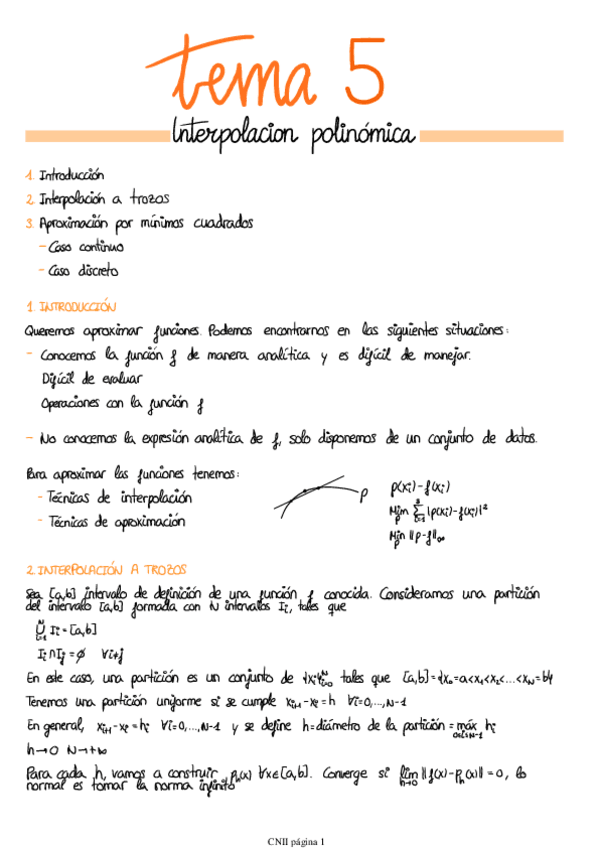 tema 5
Interpolacion polinómica
1. Introducción
2. Interpolación a trozos
3. Aproximación por mínimos cuadrados
- Caso continuo
- Caso discreto
1. INTRODUCCIÓN
Queremos aproximar funciones. Podemos encontrarnos en las siguientes situaciones:
- Conocemos la función f de manera analítica y es difícil de manejar.
Difícil de evaluar
Operaciones con la función f
- No conocemos la expresión analítica de f, solo disponemos de un conjunto de datos.
Para aproximar las funciones tenemos:
- Técnicas de interpolación
- Técnicas de aproximación
p
p(xᵢ)-f(xᵢ)
Min_p Σ |p(xᵢ)-f(xᵢ)|²
Min_p ||p-f||∞
2. INTERPOLACIÓN A TROZOS
Sea [a,b] intervalo de definición de una función f conocida. Consideramos una partición
del intervalo [a,b] formada con N intervalos Iᵢ, tales que
⋃ᵢ₌₁ᴺ Iᵢ = [a,b]
Iᵢ ∩ Iⱼ = ∅ ∀i≠j
En este caso, una partición es un conjunto de {xᵢ}ᵢ₌₀ᴺ tales que [a,b]={x₀=a<x₁<x₂<...<x_N=b}
Tenemos una partición uniforme si se cumple xᵢ₊₁-xᵢ=h ∀i=0,...,N-1
En general, xᵢ₊₁-xᵢ=hᵢ ∀i=0,...,N-1 y se define h=diámetro de la partición = máx hᵢ 0≤i≤N-1
h→0 N→+∞
Para cada h, vamos a construir pₕ(x) ∀x∈[a,b]. Converge si lim h→0 ||f(x)-pₕ(x)||=0, lo
normal es tomar la norma infinito
CNII página 1